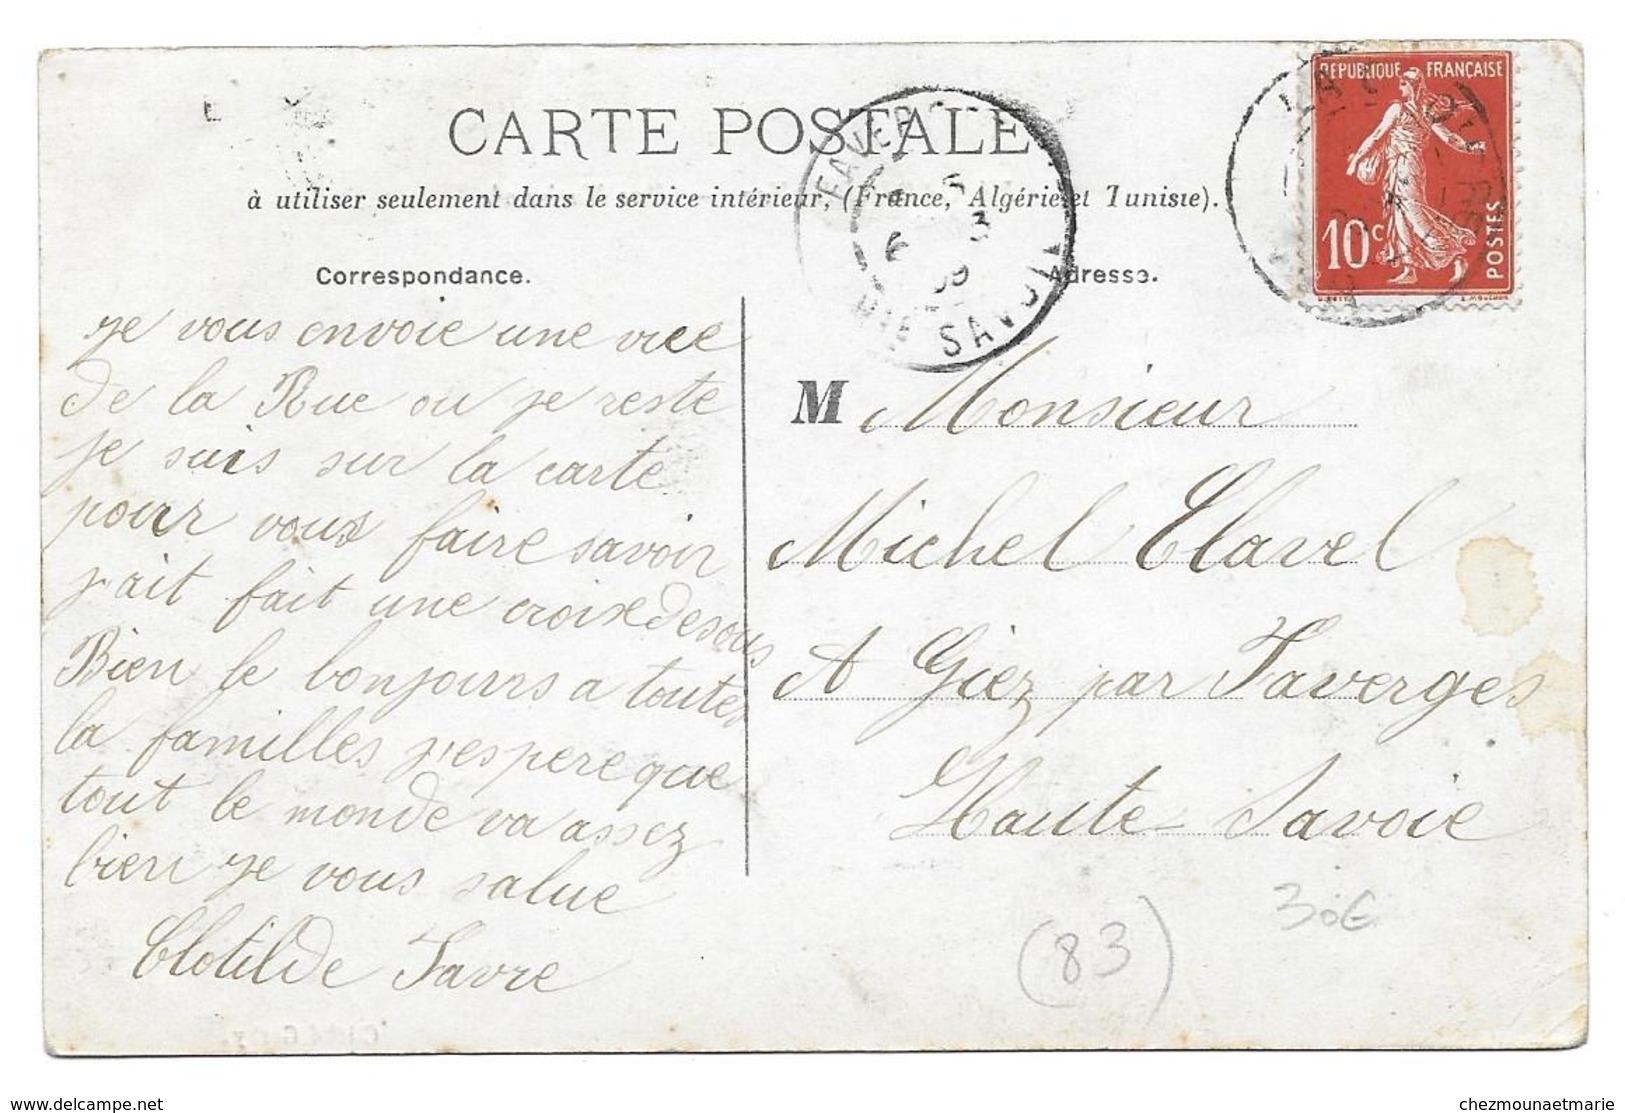 CARTE POSTALE
à utiliser seulement dans le service intérieur, (France, Algérie et Tunisie).
Correspondance.
Adresse.
REPUBLIQUE FRANÇAISE
10c
POSTES
FAVER
6 3 09
SAVOI
je vous envoie une vue
de la Rue ou je reste
je suis sur la carte
pour vous faire savoir
j'ait fait une croix desous
Bien le bonjours a toutes
la familles j'espere que
tout le monde va assez
bien je vous salue
Clotilde Favre
M Monsieur
Michel Clavel
A Giez par Faverges
Haute-Savoie
(83)
30€
www.delcampe.net
chezmounaetmarie